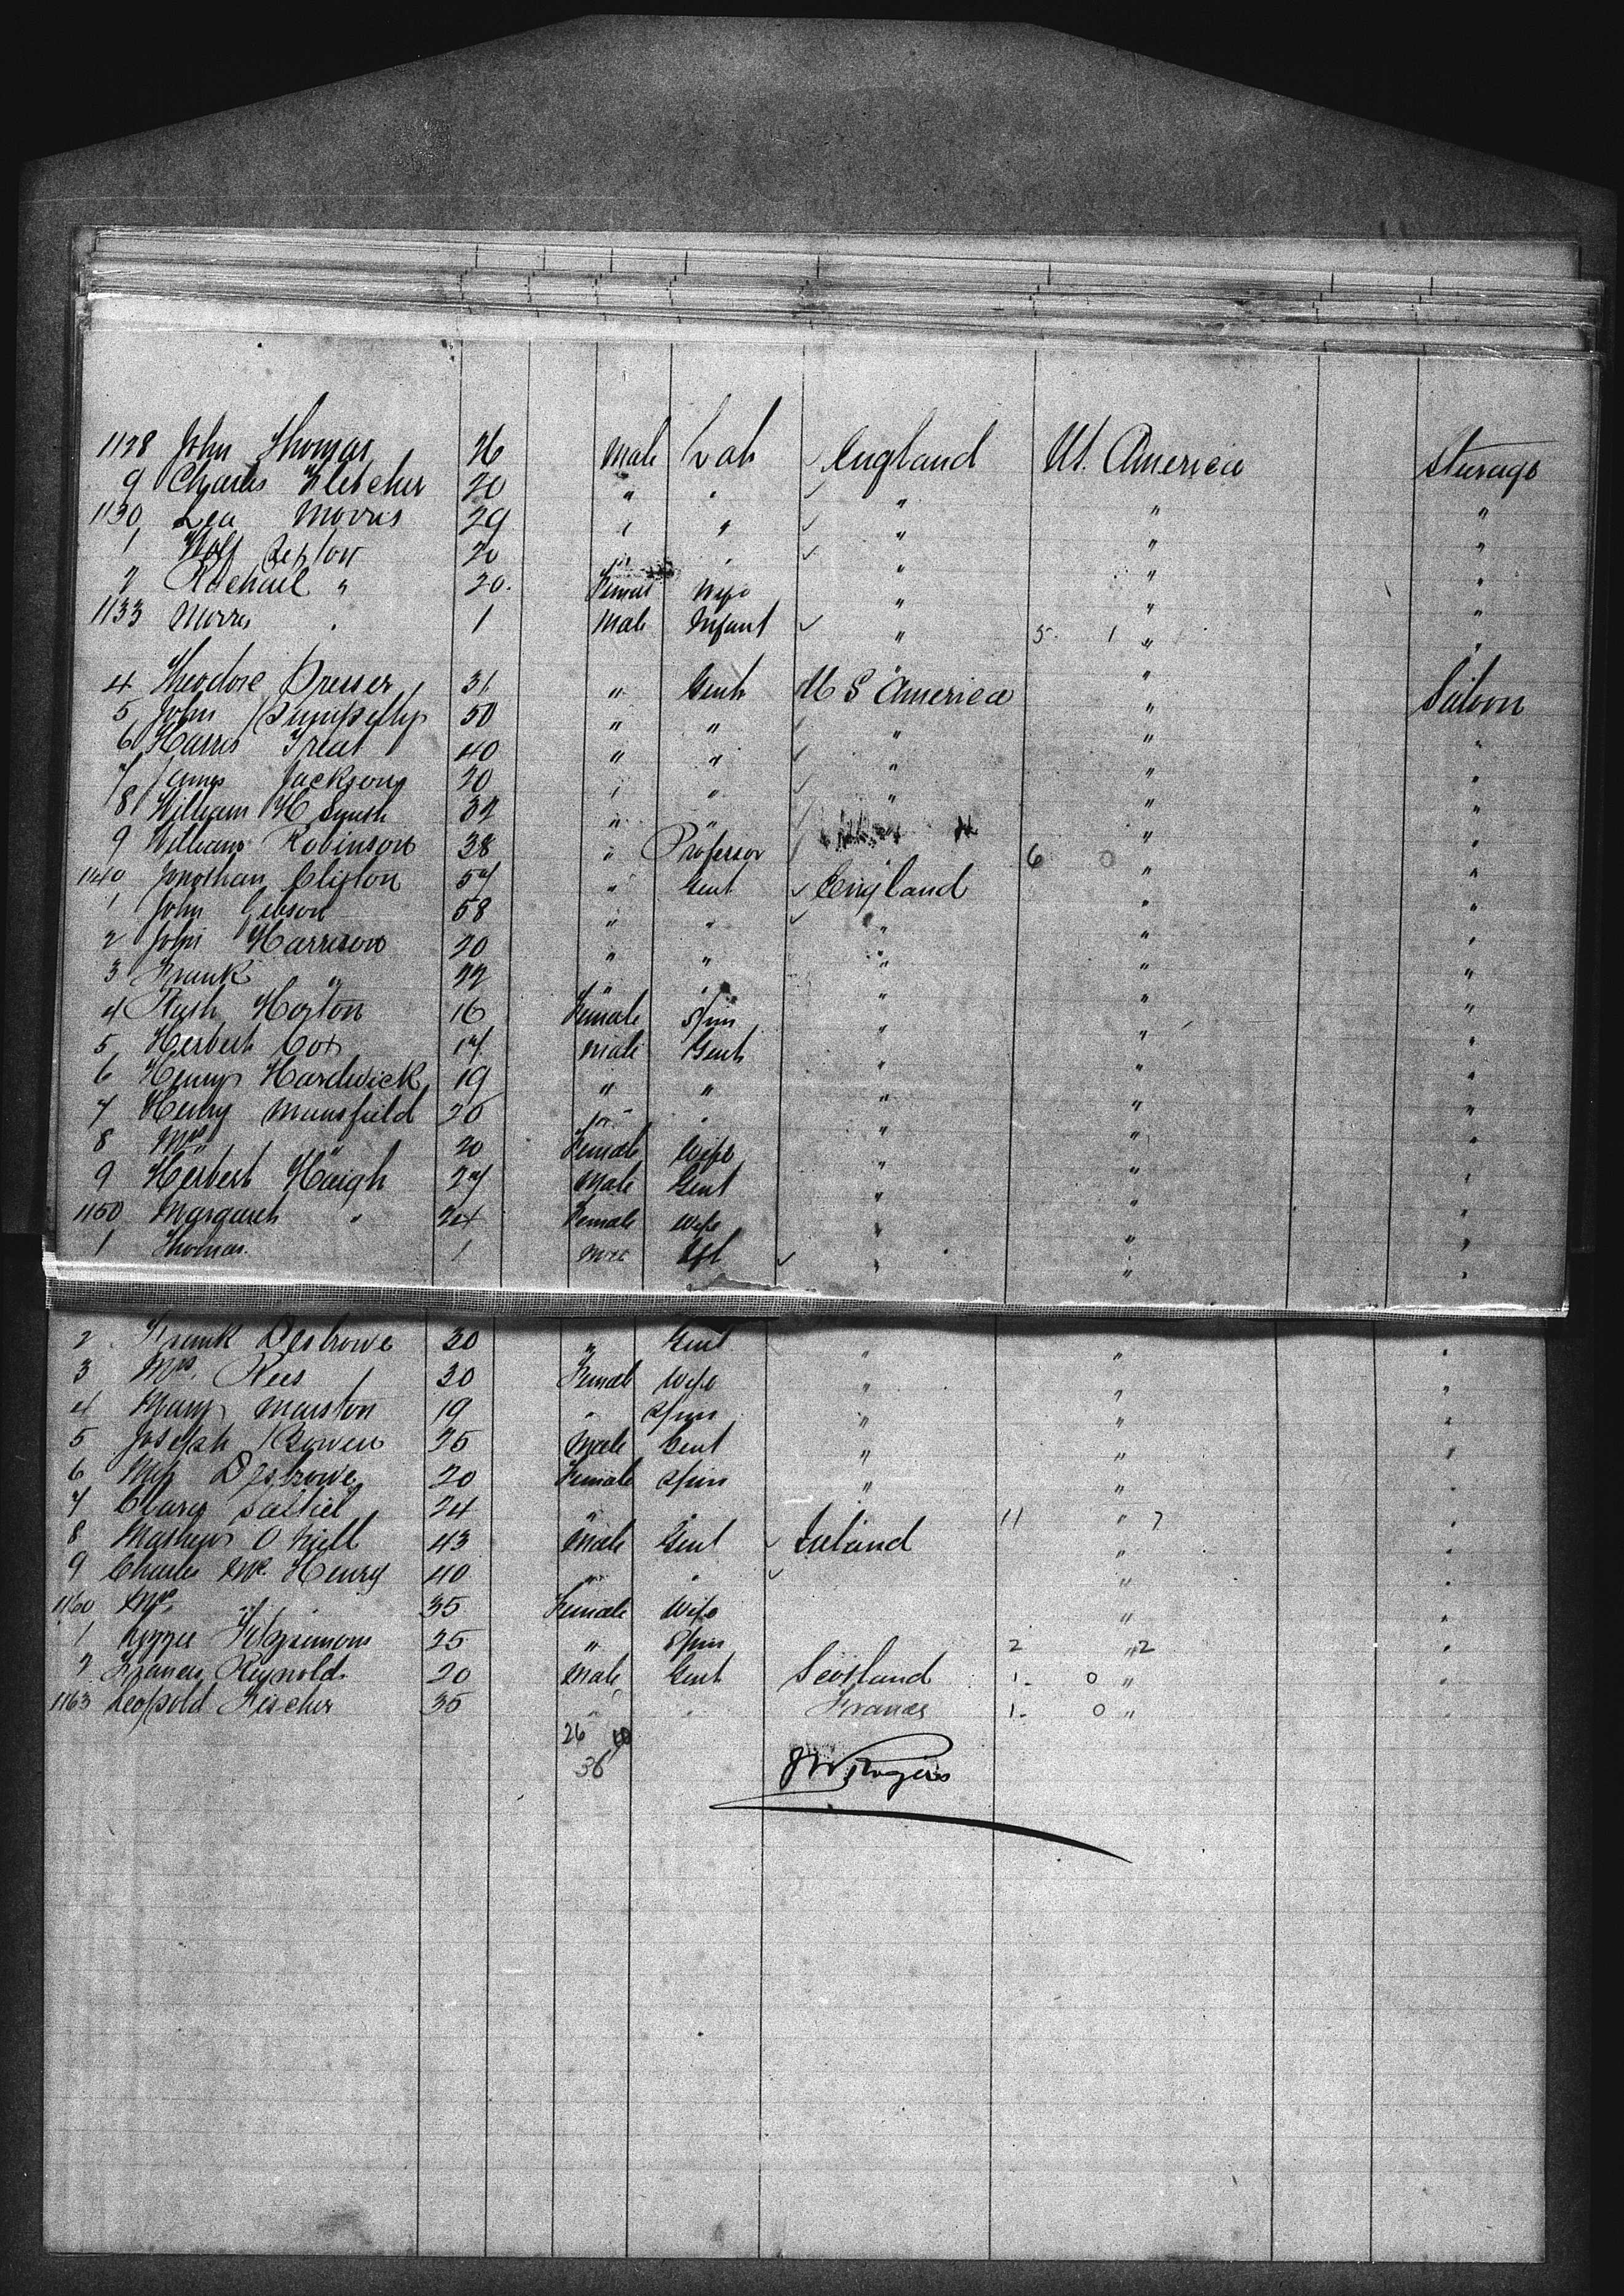 1128 John Thomas 26 Male Lab ✓ England U.S. America Steerage
9 Charles Fletcher 20 " " ✓ " " "
1130 Lea Morris 29 " " ✓ " " "
1 Wolf 20 " " ✓ " " "
2 Rachael " 20. Female Wife " " "
1133 Morris " 1 Male Infant ✓ " 5 1 " "
4 Theodore Presser 31 " Gent U S America " Saloon
5 John Pumpelly 50 " " ✓ " " "
6 Harris Treat 40 " " ✓ " " "
7 James Jackson 20 " " ✓ " " "
8 William H Smith 32 " " ✓ " "
9 William Robinson 38 " Professor 6 0 " "
1140 Jonathan Clifton 57 " Gent ✓ England " "
1 John Gibson 58 " " ✓ " " "
2 John Harrison 20 " " " " "
3 Frank " 22 " " " " "
4 Ruth Horton 16 Female Spin " " "
5 Herbert Cox 17 Male Gent " " "
6 Henry Hardwick 19 " " " " "
7 Henry Mansfield 26 " " " " "
8 Mrs " 20 Female Wife " " "
9 Herbert Haigh 27 Male Gent " " "
1150 Margaret " 24 Female Wife " " "
1 Thomas 1 Male Inft ✓ " " "
2 Frank Desbrowe 30 " Gent " " "
3 Mrs. Rees 30 Female Wife " " "
4 Mary Marston 19 " Spin " " "
5 Joseph Bowen 25 Male Gent " " "
6 Miss Desbrowe 20 Female Spin " " "
7 Clara Saltiel 24 " " 11 " 7 "
8 Mathew O Neill 43 Male Gent ✓ Ireland " "
9 Charles Mc Henry 40 " " ✓ " "
1160 Mrs " 35 Female Wife " "
1 Lizzie Fitzsimons 25 " Spin 2 " 2 "
2 Francis Reynolds 20 Male Gent Scotland 1. 0 " "
1163 Leopold Fischer 35 " " France 1. 0 " "
26 10
36 Rogers